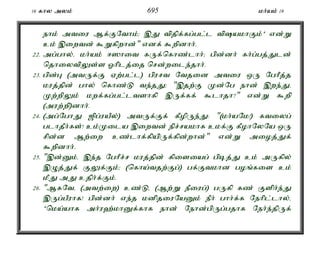 16 கால அலம் 695 மர்யம் 19
நாம் அவரை ஆக்குவோம்; இது விதிக்கப்பட்ட விஷயமாகும்’ என்று
உம் இறைவன் கூறுகிறான்” எனக் கூறினார்;
22. அப்பால், மர்யம் ஈஸாவை கருக்கொண்டார்; பின்னர் கர்ப்பத்துடன்
தொலைவிலுள்ள ஓரிடத்தை சென்றடைந்தார்.
23. பின்பு (அவருக்கு ஏற்பட்ட) பிரசவ வேதனை அவரை ஒரு பேரீத்த
மரத்தின் பால் கொண்டு வந்தது; “இதற்கு முன்பே நான் இறந்து,
முற்றிலும் மறக்கப்பட்டவளாகி இருக்கக் கூடாதா!” என்று கூறி
(அரற்றி)னார்.
24. (அப்போது ஜிப்ரயீல்) அவருக்குக் கீழிருந்து “(மர்யமே!) கவலைப்
படாதீர்கள்! உம்முடைய இறைவன் நிச்சயமாக உமக்கு கீழாலேயே ஒரு
சின்ன ஆற்றை உண்டாக்கியிருக்கின்றான்” என்று அழைத்துக்
கூறினார்.
25. “இன்னும், இந்த பேரீச்ச மரத்தின் கிளையைப் பிடித்து உம் அருகில்
இழுத்துக் குலுக்கும்; (கொய்வதற்குப்) பக்குவமான பழங்களை உம்
மீது அது உதிர்க்கும்.
26. “ஆகவே, (அவற்றை) உண்டு, (ஆற்று நீரைப்) பருகி கண் குளிர்ந்து
இருப்பீராக! பின்னர் எந்த மனிதரையேனும் நீர் பார்க்க நேரிட்டால்,
‘மெய்யாக அர்ரஹ்மானுக்காக நான் நோன்பிருப்பதாக நேர்ந்திருக்